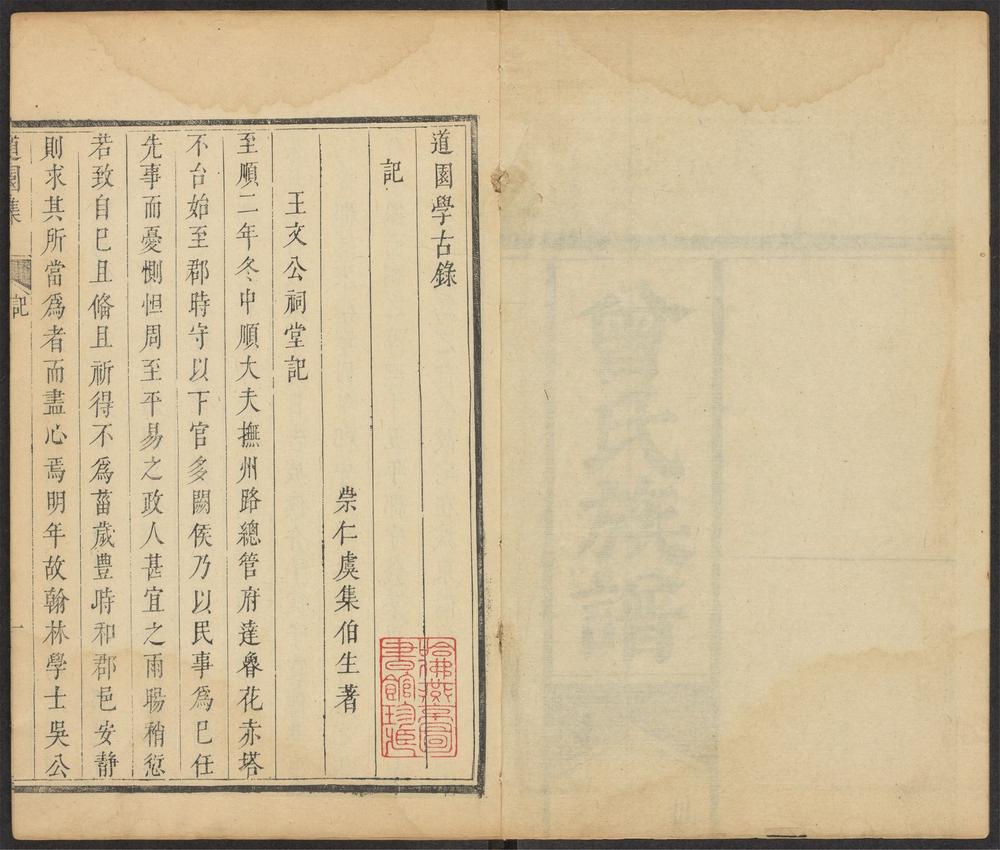 道園學古錄
記
崇仁虞集伯生著
王文公祠堂記
至順二年冬中順大夫撫州路總管府達魯花赤塔
不台始至郡時守以下官多闕侯乃以民事爲已任
先事而憂惻怛周至平易之政人甚宜之雨暘稍愆
若致自已且脩且祈得不爲菑歲豊時和郡邑安靜
則求其所當爲者而盡心焉明年故翰林學士吳公
道園集
記
一
哈佛燕京圖
書館珍藏